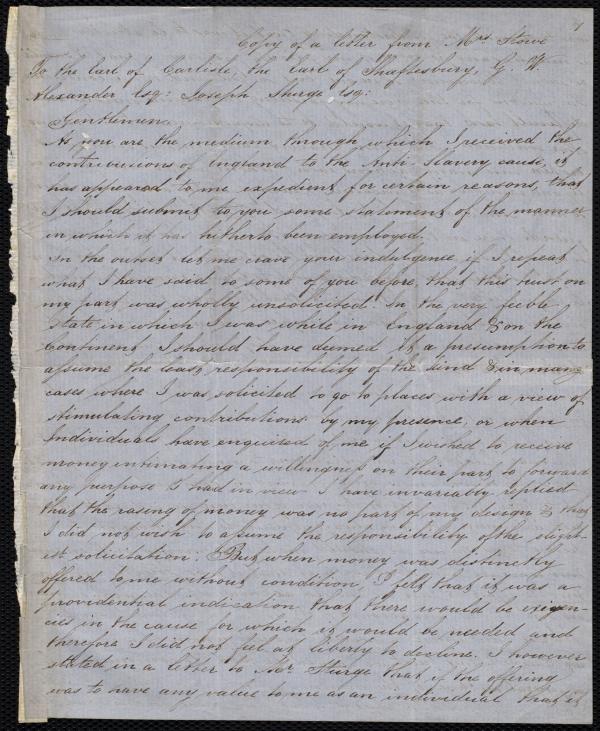 Copy of a letter from Mrs Stowe
To the Earl of Carlisle, the Earl of Shaftesbury, G. W.
Alexander Esq: Joseph Sturge Esq:
Gentlemen
As you are the medium through which I received the
contributions of England to the Anti-Slavery cause, it
has appeared to me expedient for certain reasons, that
I should submit to you some statement of the manner
in which it has hitherto been employed.
In the outset let me crave your indulgence if I repeat
what I have said to some of you before, that this trust on
my part was wholly unsolicited. In the very feeble
state in which I was while in England & on the
Continent I should have deemed it a presumption to
assume the least responsibility of the kind & in many
cases where I was solicited to go to places with a view of
stimulating contributions by my presence, or when
Individuals have enquired of me if I wished to receive
money intimating a willingness on their part to forward
any purpose I had in view I have invariably replied
that the rasing of money was no part of my design & that
I did not wish to assume the responsibility of the slight-
est solicitation. But when money was distinctly
offered to me without condition I felt that it was a
providential indication that there would be exigen-
cies in the cause for which it would be needed and
therefore I did not feel at liberty to decline. I however
stated in a letter to Mr Sturge that if the offering
was to have any value to me as an individual that it